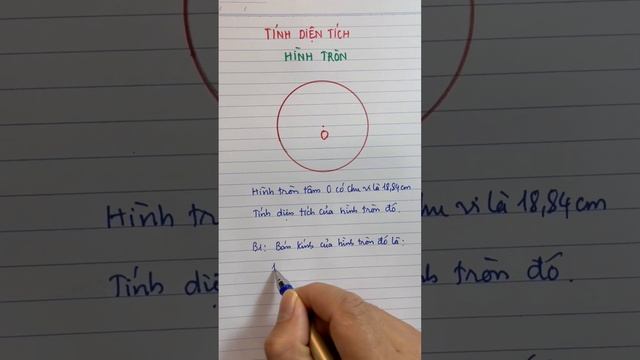 TÍNH DIỆN TÍCH
HÌNH TRÒN
O
Hình tròn tâm O có chu vi là 18,84cm
Tính diện tích của hình tròn đó.
B1: Bán kính của hình tròn đó là:
1